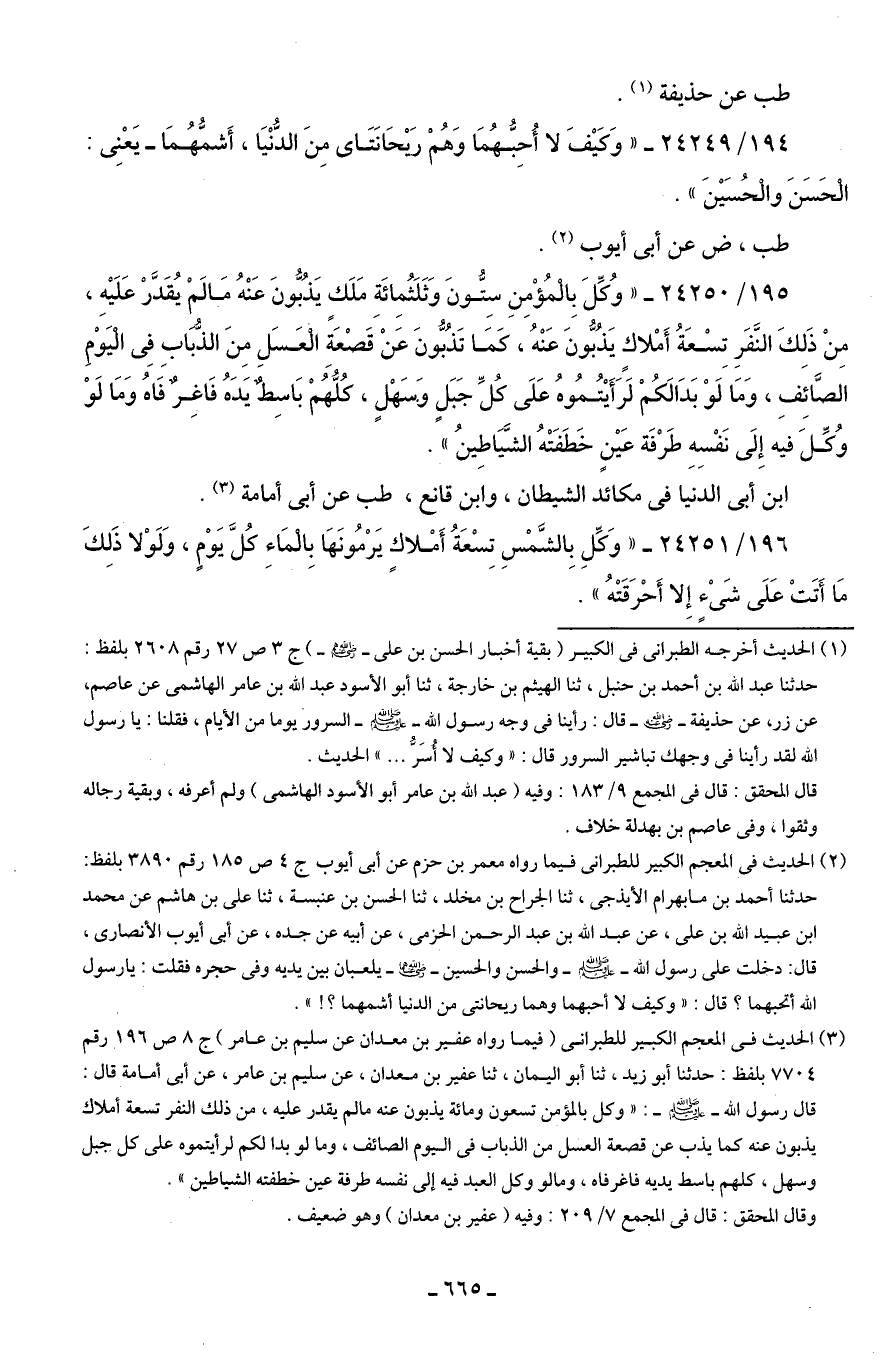 طب عن حذيفة (١) .
١٩٤/ ٢٤٢٤٩ ـ « وَكَيْفَ لا أُحبُّهُمَا وَهُمْ رَيْحَانَتَاى مِنَ الدُّنْيَا ، أَشمُّهُمَا ـ يَعْنِى :
الْحَسَنَ والْحُسَيْنَ » .
طب ، ض عن أبى أيوب (٢) .
١٩٥/ ٢٤٢٥٠ ـ « وُكِّلَ بِالْمُؤْمنِ ستُّونَ وَثَلَثُمائَة مَلَكٍ يَذبُّونَ عَنْهُ مَـالَمْ يُقَدَّرْ عَلَيْهِ ،
مِنْ ذَلكَ النَّفَرِ تِسْعَةُ أَمْلاكٍ يَذبُّونَ عَنْهُ ، كَمَا تَذبُّونَ عَنْ قَصْعَةِ الْعَسَلِ مِنَ الذُّبَابِ فِى الْيَوْمِ
الصَّائِفِ ، وَمَا لَوْ بَدَالَكُمْ لَرَأَيْتُمُوهُ عَلَى كُلِّ جَبَلٍ وَسَهْلٍ ، كُلُّهُمْ بَاسطٌ يَدَهُ فَاغِرٌ فَاهُ وَمَا لَوْ
وُكِّلَ فيه إِلَى نَفْسِهِ طَرْفَةَ عَيْنٍ خَطَفَتْهُ الشَّيَاطِينُ » .
ابن أبى الدنيا فى مكائد الشيطان ، وابن قانع ، طب عن أبى أمامة (٣) .
١٩٦/ ٢٤٢٥١ ـ « وَكِّلَ بِالشَّمْسِ تِسْعَةُ أَمْلاكٍ يَرْمُونَهَا بِالْمَاءِ كُلَّ يَوْمٍ ، وَلَوْلا ذَلكَ
مَا أَتَتْ عَلَى شَىْءٍ إِلا أَحْرَقَتْهُ » .
(١) الحديث أخرجه الطبرانى فى الكبير ( بقية أخبار الحسن بن على ـ رضي الله عنهما ـ ) ج ٣ ص ٢٧ رقم ٢٦٠٨ بلفظ :
حدثنا عبد الله بن أحمد بن حنبل ، ثنا الهيثم بن خارجة ، ثنا أبو الأسود عبد الله بن عامر الهاشمى عن عاصم،
عن زر، عن حذيفة ـ رضي الله عنه ـ قال : رأينا فى وجه رسول الله ـ صلى الله عليه وسلم ـ السرور يوما من الأيام ، فقلنا : يا رسول
الله لقد رأينا فى وجهك تباشير السرور قال : « وكيف لا أُسَرُّ ... » الحديث .
قال المحقق : قال فى المجمع ٩/ ١٨٣ : وفيه ( عبد الله بن عامر أبو الأسود الهاشمى ) ولم أعرفه ، وبقية رجاله
وثقوا ، وفى عاصم بن بهدلة خلاف .
(٢) الحديث فى المعجم الكبير للطبرانى فيما رواه معمر بن حزم عن أبى أيوب ج ٤ ص ١٨٥ رقم ٣٨٩٠ بلفظ:
حدثنا أحمد بن مابهرام الأيذجى ، ثنا الجراح بن مخلد ، ثنا الحسن بن عنبسة ، ثنا على بن هاشم عن محمد
ابن عبيد الله بن على ، عن عبد الله بن عبد الرحمن الحزمى ، عن أبيه عن جده ، عن أبى أيوب الأنصارى ،
قال: دخلت على رسول الله ـ صلى الله عليه وسلم ـ والحسن والحسين ـ رضي الله عنهما ـ يلعبان بين يديه وفى حجره فقلت : يارسول
الله أتحبهما ؟ قال : « وكيف لا أحبهما وهما ريحانتى من الدنيا أشمهما ؟! » .
(٣) الحديث فى المعجم الكبير للطبرانى ( فيما رواه عفير بن معدان عن سليم بن عامر ) ج ٨ ص ١٩٦ رقم
٧٧٠٤ بلفظ : حدثنا أبو زيد ، ثنا أبو اليمان ، ثنا عفير بن معدان ، عن سليم بن عامر ، عن أبى أمامة قال :
قال رسول الله ـ صلى الله عليه وسلم ـ : « وكل بالمؤمن تسعون ومائة يذبون عنه مالم يقدر عليه ، من ذلك النفر تسعة أملاك
يذبون عنه كما يذب عن قصعة العسل من الذباب فى اليوم الصائف ، وما لو بدا لكم لرأيتموه على كل جبل
وسهل ، كلهم باسط يديه فاغرفاه ، ومالو وكل العبد فيه إلى نفسه طرفة عين خطفته الشياطين » .
وقال المحقق : قال فى المجمع ٧/ ٢٠٩ : وفيه ( عفير بن معدان ) وهو ضعيف .
ـ ٦٦٥ ـ